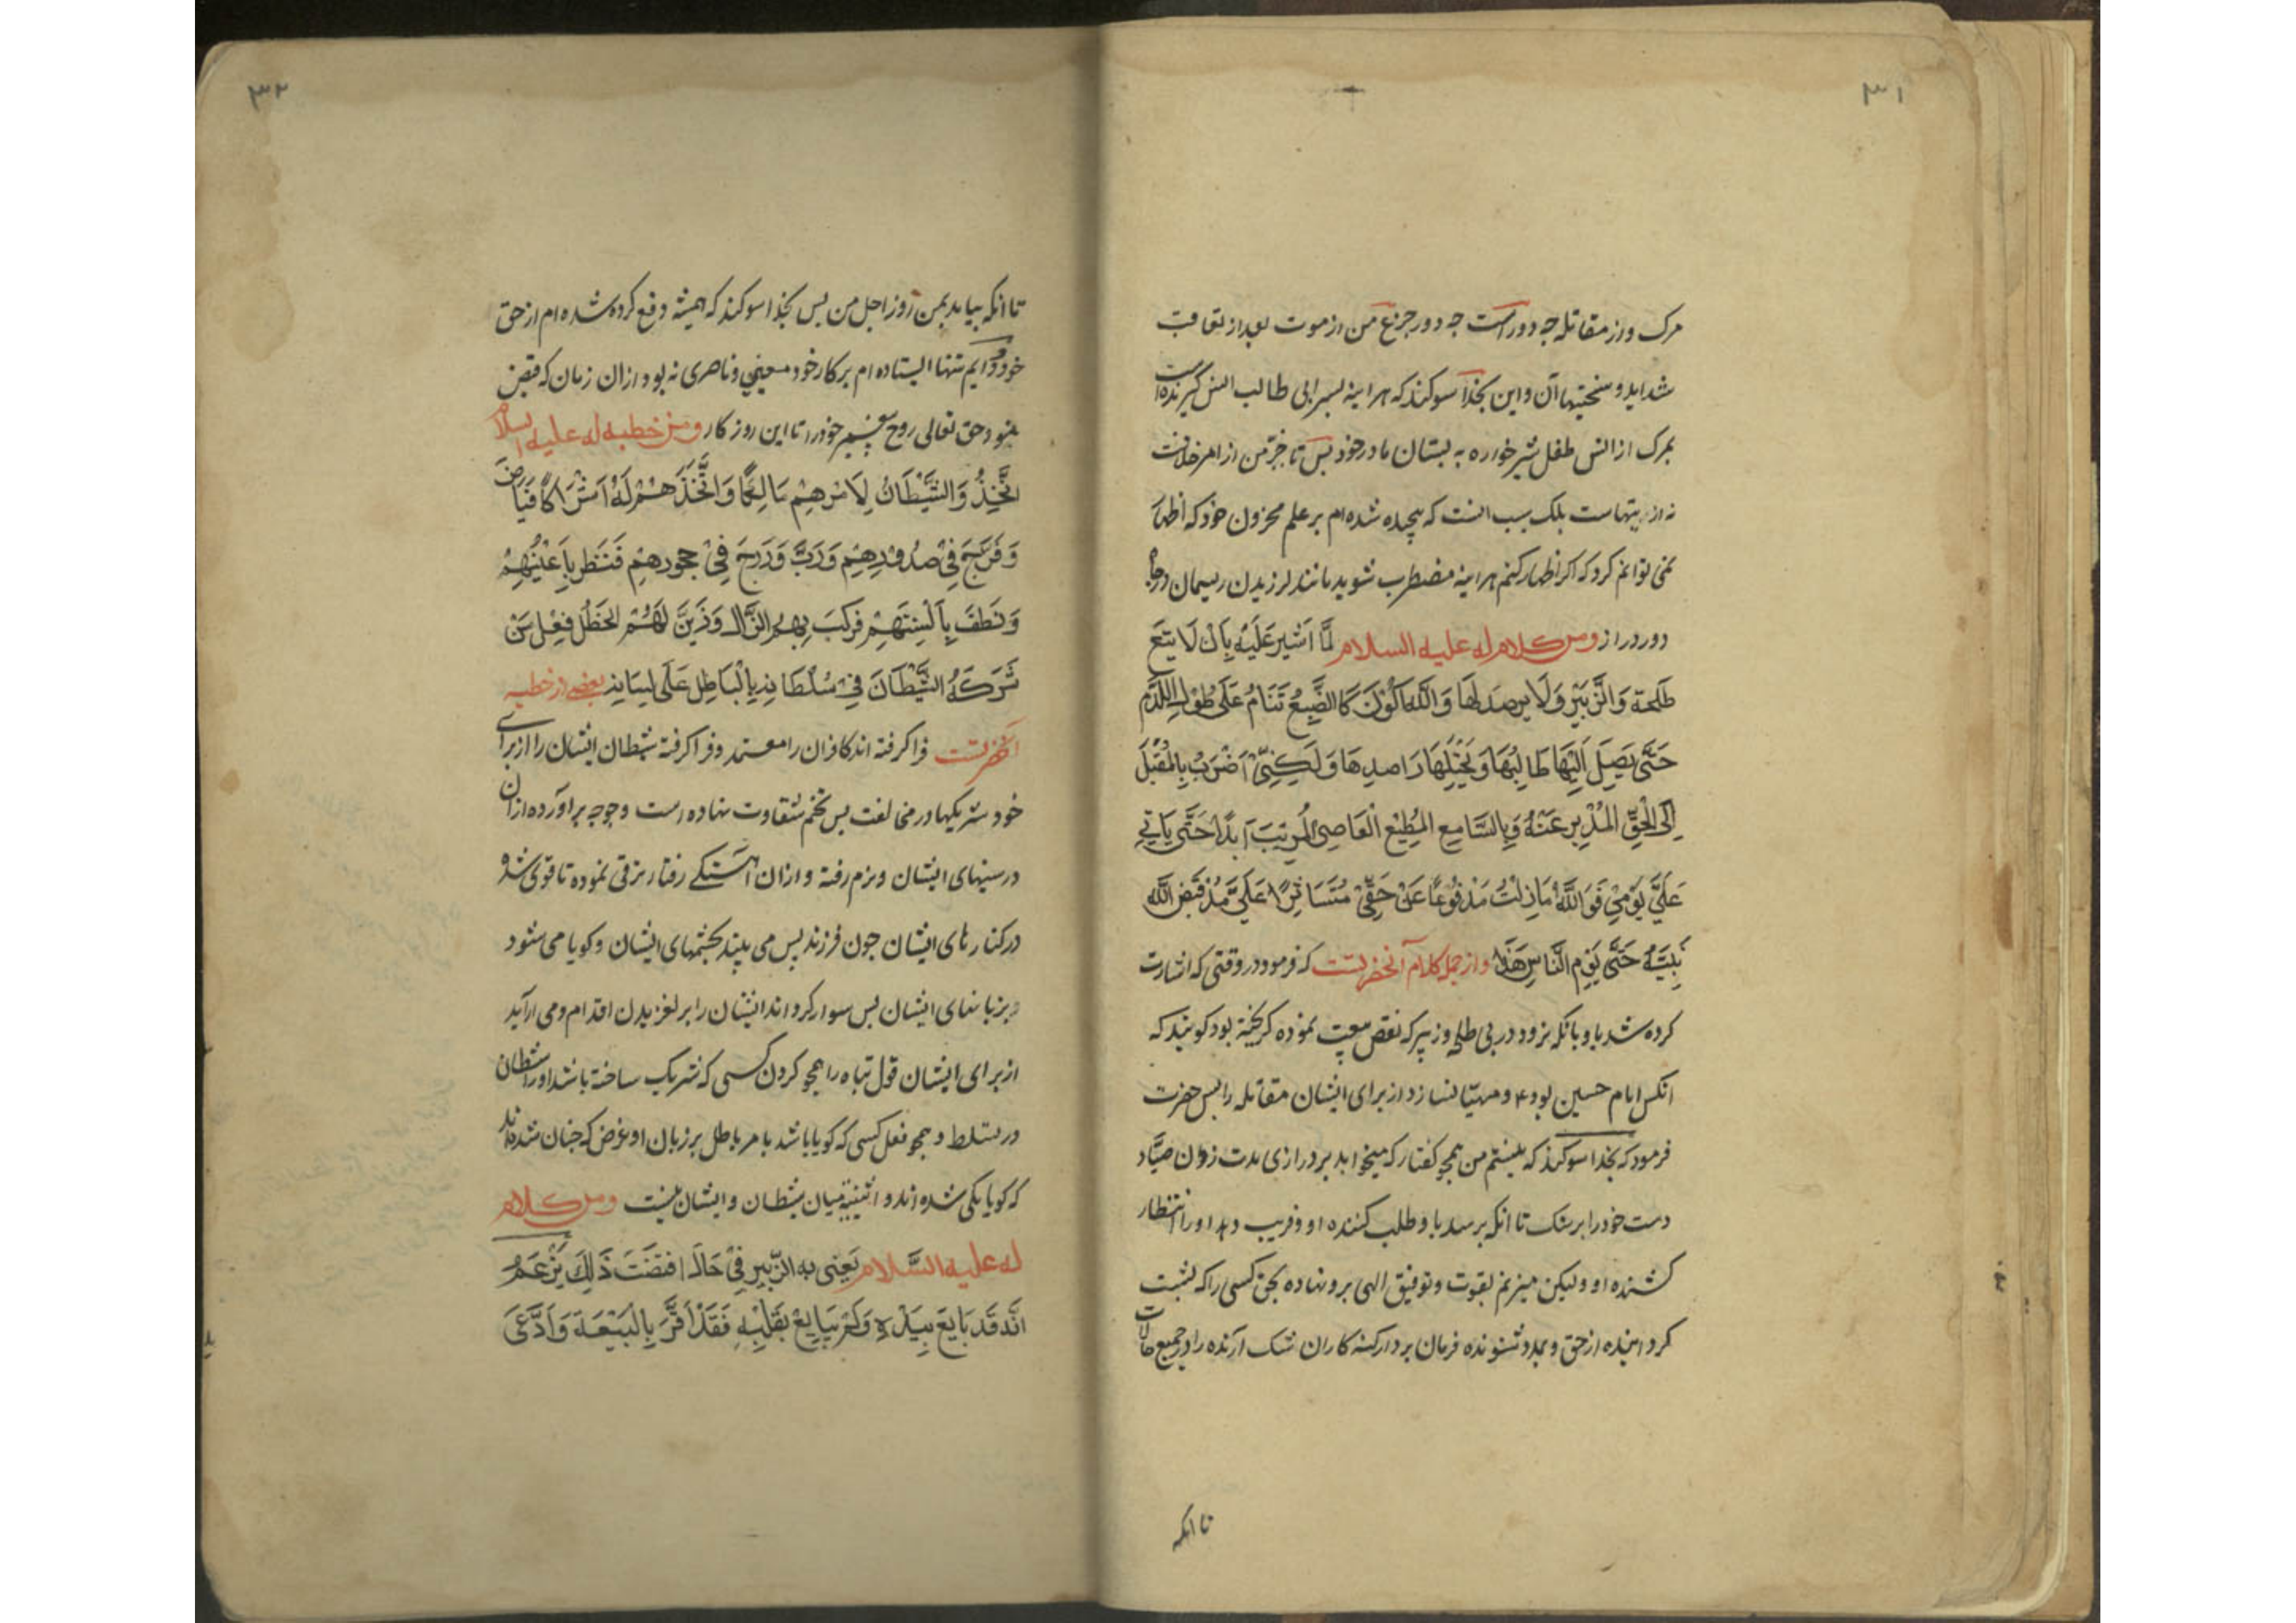 ۳۱
مرک و از مقاتله چه دور است چه دور جزع من از موت بعد از تعاقب
شداید و سختیها آن و این بخدا سوکند که هراینه پسر ابی طالب انس کیرنده است
بمرک از انس طفل شیرخواره به پستان مادر خود پس تاخر من از امر خلافت
نه از اینهاست بلک سبب انست که پیچیده شده ام بر علم مخزون خود که اظهار
نمی توانم کرد که اکر اظهار کنم هراینه مضطرب شوید مانند لرزیدن ریسمان در چاه
دور دراز ومن کلام له علیه السلام لَمَّا اَشیر عَلَیْهِ بِاَنْ لَا یتبَعَ
طَلحَةَ وَالزُّبَیْر وَلَا یرصدَ لَهَا وَاللّٰهِ لَا اَکُوْنَ کَالضَّبُعِ تَنَامُ عَلَی طُوْلِ اللَّدْمِ
حَتَّی یَصِلَ اِلَیْهَا طَالِبُهَا وَیَخْتِلَهَا رَاصِدُهَا وَلَکِنِّیْ اَضْرَبُ بِالْمُقْبِلِ
اِلَی الْحَقِّ الْمُدْبِرِ عَنْهُ وَبِالسَّامِعِ الْمُطِیْعِ الْعَاصِیَ الْمُرِیْبَ اَبَدًا حَتَّی یَاتِیَ
عَلَیَّ یَوْمِیْ فَوَاللّٰهِ مَا زِلْتُ مَدْفُوْعًا عَنْ حَقِّیْ مُسْتَاثِرًا عَلَیَّ مُذْ قَبَضَ اللّٰه
نَبِیَّهُ حَتَّی یَوْمِ النَّاسِ هَذَا و از جمله کلام آنحضرتست که فرمود در وقتی که اشارت
کرده شد باو بانکه نرود در پی طلحه و زبیر که نقض بیعت نموده کریخته بود کویند که
انکس امام حسین بود ع و مهیا نسازد از برای ایشان مقاتله را پس حضرت
فرمود که بخدا سوکند که نیستم من همچو کفتار که میخوابد بر درازی مدت زدن صیاد
دست خود را بر سنک تا انکه برسد باو طلب کننده او و فریب دهد او را انتظار
کشنده او ولیکن میزنم بقوت و توفیق الهی برو نهاده بحق کسی را که پشت
کرداننده از حق و بمدد شنونده فرمان بردار کنه کاران شک آرنده را در جمیع حالات
تا انکه
۳۲
تا انکه بیاید بمن روز اجل من پس بخدا سوکند که همیشه دفع کرده شده ام از حق
خود و دایم تنها ایستاده ام بر کار خود معینی و ناصری نه بود از ان زمان که قبض
نمود حق تعالی روح پیغمبر خود را تا این روز کار ومن خطبه له علیه السلام
اتَّخِذُ وَالشَّیْطَانُ لِاَمْرِهِمْ مَالِکًا وَاتَّخَذَهُمْ لَهُ اَشْرَاکًا فَبَاضَ
وَفَرَّخَ فِیْ صُدُوْرِهِمْ وَدَبَّ وَدَرَجَ فِیْ حجورِهِمْ فَنَظَر بِاَعْیُنِهِمْ
وَنَطَقَ بِاَلْسِنَتِهِمْ فَرَکَبَ بِهِمُ الزَّلَلَ وَزَیَّنَ لَهُمُ الخَطَلَ فِعْلَ مَنْ
شَرِکَهُ الشَّیْطَانَ فِیْ سُلْطَانِهِ بِالْبَاطِلِ عَلَی لِسَانِهِ بعضی از خطبه
آنحضرتست فرا کرفته اند کافران را معتمد و فرا کرفته شیطان ایشان را از برای
خود شریکها در مخالفت پس تخم شقاوت نهاده است و جوجه براورده از ان
در سینهای ایشان و نرم رفته و ازان اهستکی رفتار ترقی نموده تا قوی شده
در کنارهای ایشان چون فرزند پس می بیند بچشمهای ایشان و کویا می شود
بزبانهای ایشان پس سوار کرد اند ایشان را بر لغزیدن اقدام و می آراید
از برای ایشان قول تباه را همچو کردن کسی که شریک ساخته باشد او را شیطان
در تسلط و همچو فعل کسی که کویا باشد بامر باطل بر زبان او غرض که چنان شده اند
که کویا یکی شده اند و اثنینیة میان شیطان و ایشان نیست ومن کلام
له علیه السَّلام یَعْنِی به الزّبیر فِیْ حَالٍ اقتَضَتْ ذَلِکَ یَزْعَمُ
اَنَّهُ قَدْ بَایَعَ بِیَدِهِ وَلَمْ یُبَایِعْ بِقَلْبِهِ فَقَدْ اَقَرَّ بِالْبَیْعَةِ وَادَّعَی